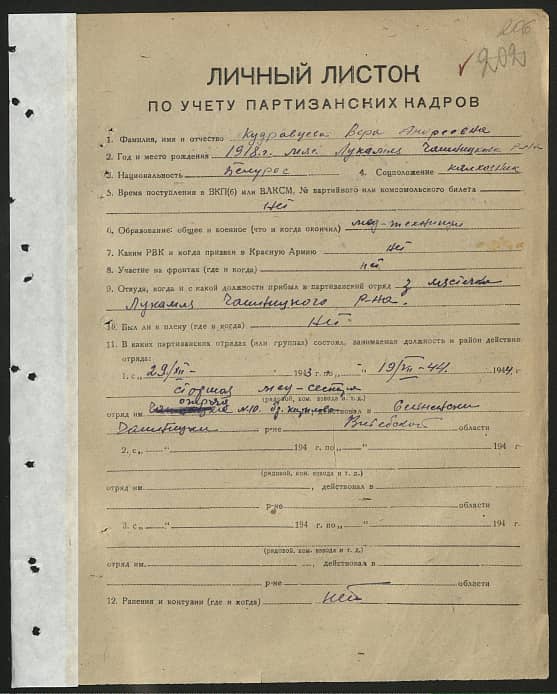 206
202
ЛИЧНЫЙ ЛИСТОК
ПО УЧЕТУ ПАРТИЗАНСКИХ КАДРОВ
1. Фамилия, имя и отчество Вера Андреевна
2. Год и место рождения 1918 г. Лукамля Чашницкага р-на
3. Национальность Беларус 4. Соцположение калхозник
5. Время поступления в ВКП(б) или ВЛКСМ, № партийного или комсомольского билета
Нет
6. Образование: общее и военное (что и когда окончил) мед-техникум
7. Каким РВК и когда призван в Красную Армию нет
8. Участие на фронтах (где и когда) нет
9. Откуда, когда и с какой должности прибыл в партизанский отряд з мястэчка
Лукамля Чашницкого р-на.
10. Был ли в плену (где и когда) Нет
11. В каких партизанских отрядах (или группах) состоял, занимаемая должность и район действия
отряда:
1. с „29/ — 1943 г. по „ “ 19/ — 44. 1944 г.
мед-сестра
отряд
(рядовой, ком. взвода и т. д.)
отряд им. №10. действовал в
Чашницки р-не Витебской области
2. с „ “ 194 г. по „ “ 194 г.
(рядовой, ком. взвода и т. д.)
отряд им. , действовал в
р-не области
3. с „ “ 194 г. по „ “ 194 г.
(рядовой, ком. взвода и т. д.)
отряд им. , действовал в
р-не области
12. Ранения и контузии (где и когда) нет